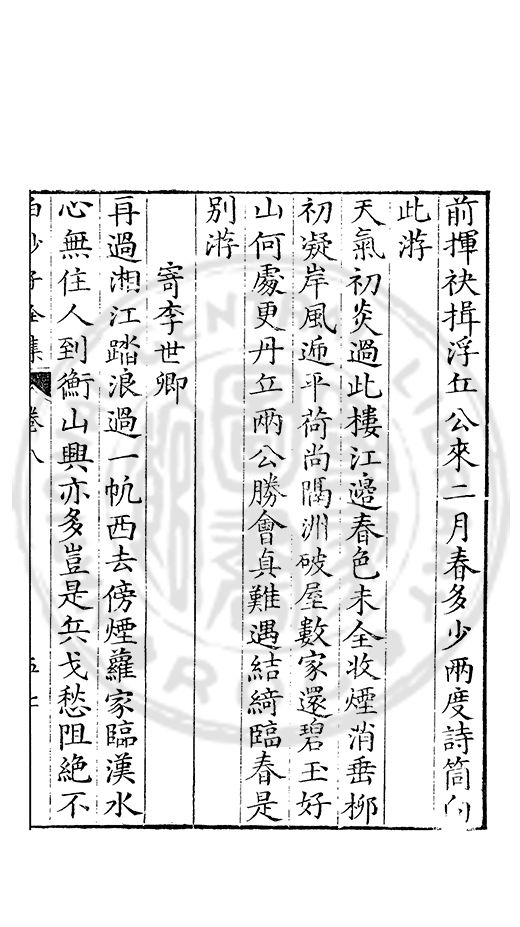 前揮袂揖浮丘公來二月春多少兩度詩筒向
此游
天氣初炎過此樓江邉春色未全收煙消垂栁
初凝岸風遞平荷尚隔洲破屋數家還碧玉好
山何處更丹丘兩公勝會真難遇結綺臨春是
别游
寄李世卿
再過湘江踏浪過一帆西去傍煙蘿家臨漢水
心無住人到衡山興亦多豈是兵戈愁阻絶不
白沙子全集 卷八 五七